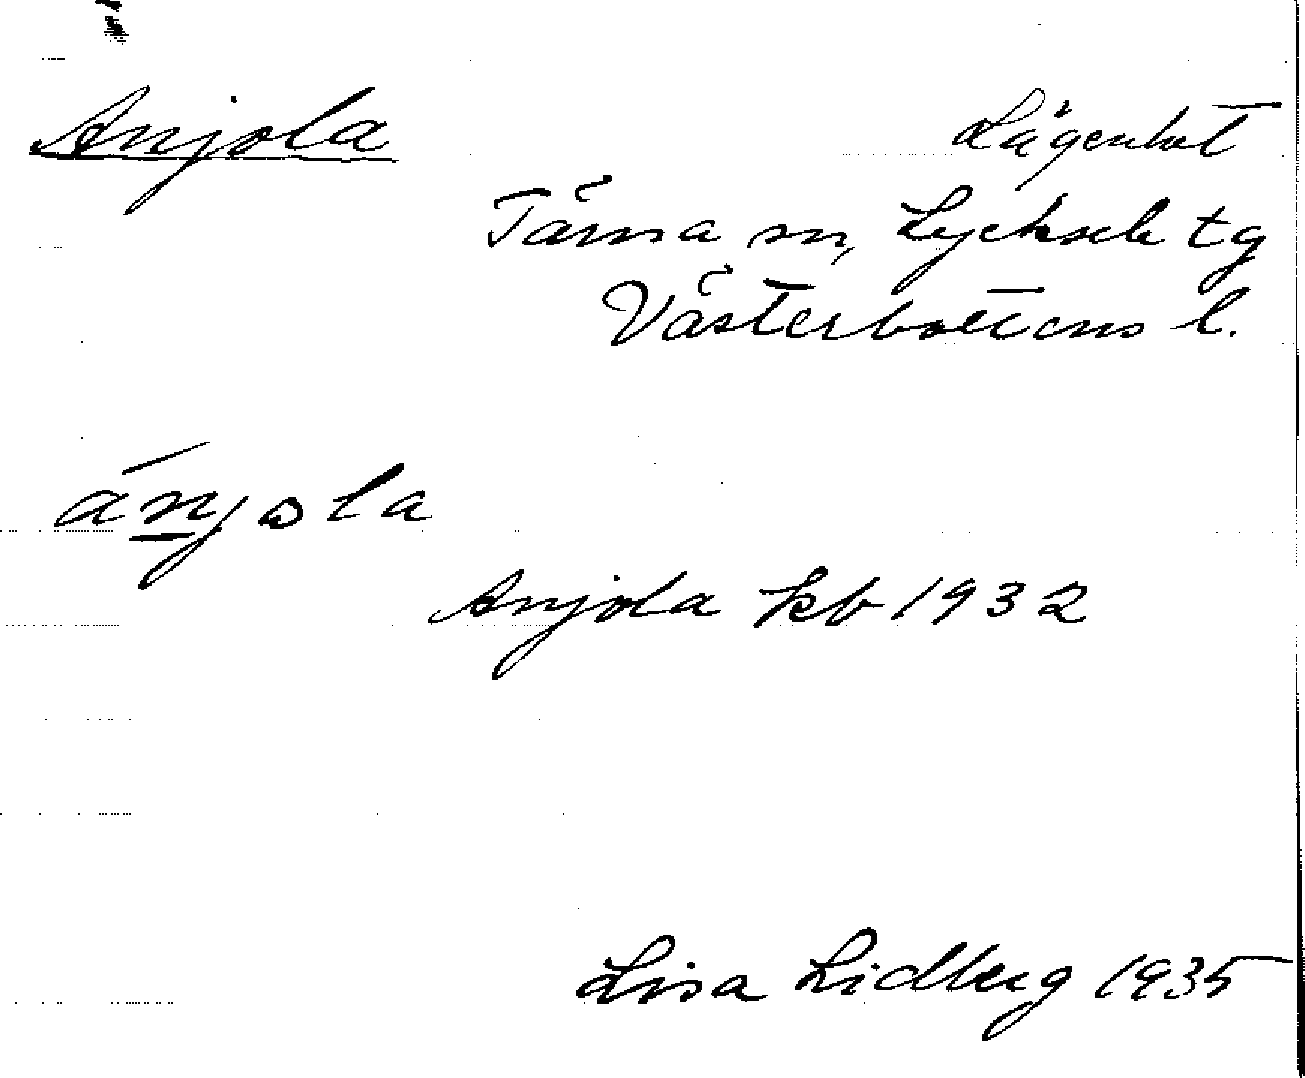 Anjola Lägenhet
Tärna sn, Lycksele tg
Västerbottens l.
ánjola
Anjola kb 1932
Lisa Lidberg 1935